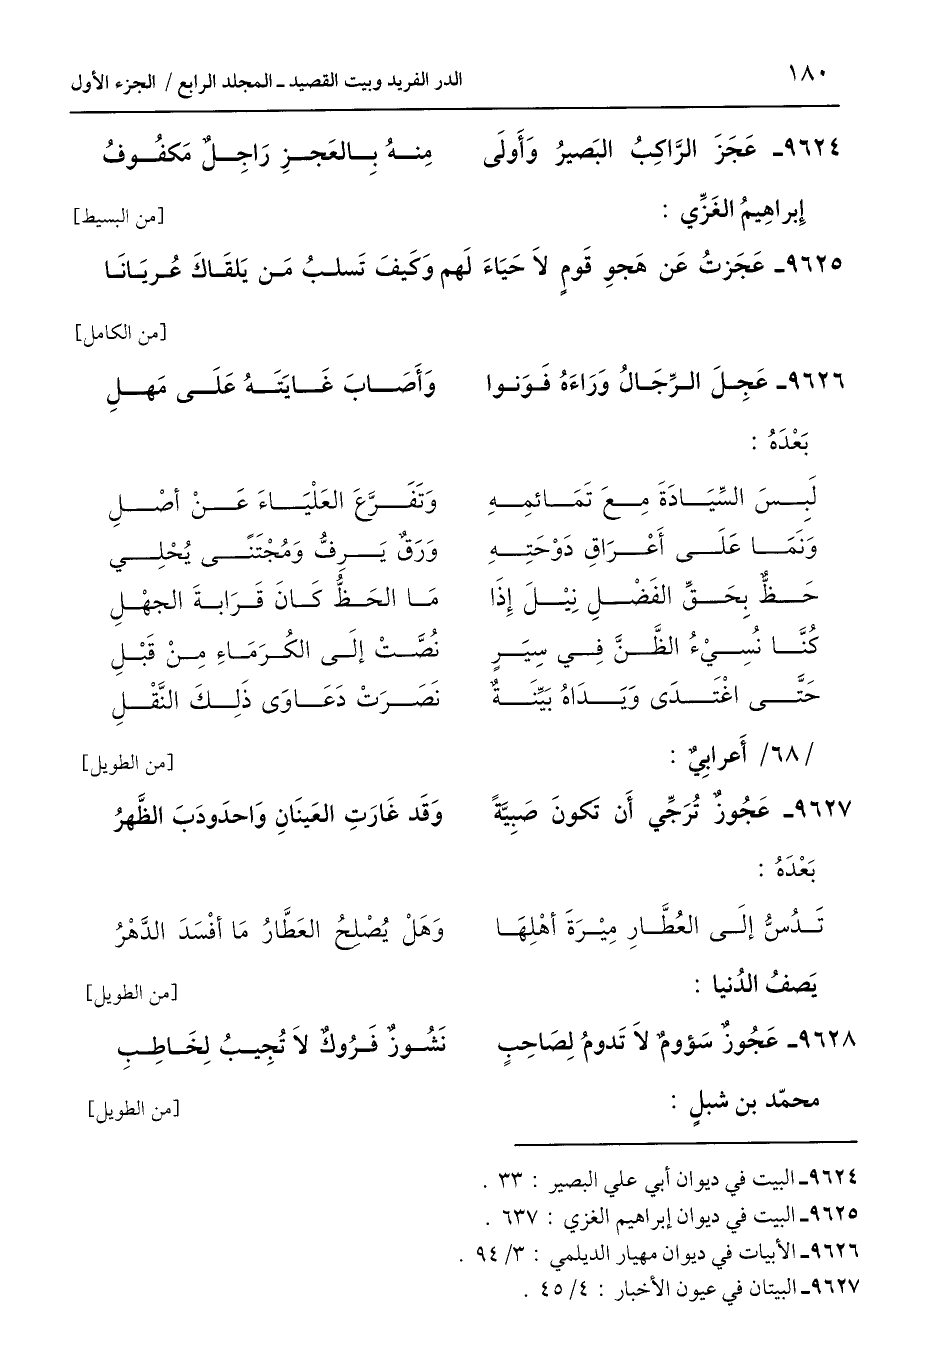 ١٨٠ الدر الفريد وبيت القصيد ـ المجلد الرابع / الجزء الأول
٩٦٢٤ـ عَجَزَ الرَّاكِبُ البَصيرُ وَأَولَى مِنهُ بِالعَجزِ رَاجِلٌ مَكفُوفُ
إبراهيمُ الغَزِّي : [من البسيط]
٩٦٢٥ـ عَجَزتُ عَن هَجوِ قَومٍ لاَ حَيَاءَ لَهم وَكَيفَ تَسلبُ مَن يَلقَاكَ عُريَانَا
[من الكامل]
٩٦٢٦ـ عَجِلَ الرِّجَالُ وَرَاءَهُ فَوَنوا وَأَصَابَ غَايَتَهُ عَلَى مَهلِ
بَعْدَهُ :
لَبِسَ السِّيَادَةَ مِعَ تَمَائمِهِ وَتَفَرَّعَ العَلْيَاءَ عَنْ أصْلِ
وَنَمَا عَلَى أعْرَاقِ دَوْحَتِهِ وَرَقٌ يَرِفُّ وَمُجْتَنًى يُحْلِي
حَظٌّ بِحَقِّ الفَضْلِ نِيْلَ إذَا مَا الحَظُّ كَانَ قَرَابةَ الجهْلِ
كُنَّا نُسِيْءُ الظَّنَّ فِي سِيَرٍ نُصَّتْ إلَى الكُرَمَاءِ مِنْ قَبْلِ
حَتَّى اغْتَدَى وَيَدَاهُ بَيِّنَةٌ نَصَرَتْ دَعَاوَى ذَلِكَ النَّقْلِ
/٦٨/ أَعرابِيٌ : [من الطويل]
٩٦٢٧ـ عَجُوزٌ تُرَجِّي أَن تَكونَ صَبِيَّةً وَقَد غَارَتِ العَينَانِ وَاحدَودَبَ الظَّهرُ
بَعْدَهُ :
تَدُسُّ إلَى العُطَّارِ مِيْرَةَ أهْلِهَا وَهَلْ يُصْلِحُ العَطَّارُ مَا أفْسَدَ الدَّهْرُ
يَصفُ الدُنيا : [من الطويل]
٩٦٢٨ـ عَجُوزٌ سَؤومٌ لاَ تَدومُ لِصَاحِبٍ نَشُوزٌ فَروكٌ لاَ تُجِيبُ لِخَاطِبِ
محمّد بن شبلٍ : [من الطويل]
٩٦٢٤ـ البيت في ديوان أبي علي البصير : ٣٣ .
٩٦٢٥ـ البيت في ديوان إبراهيم الغزي : ٦٣٧ .
٩٦٢٦ـ الأبيات في ديوان مهيار الديلمي : ٣/ ٩٤ .
٩٦٢٧ـ البيتان في عيون الأخبار : ٤/ ٤٥ .